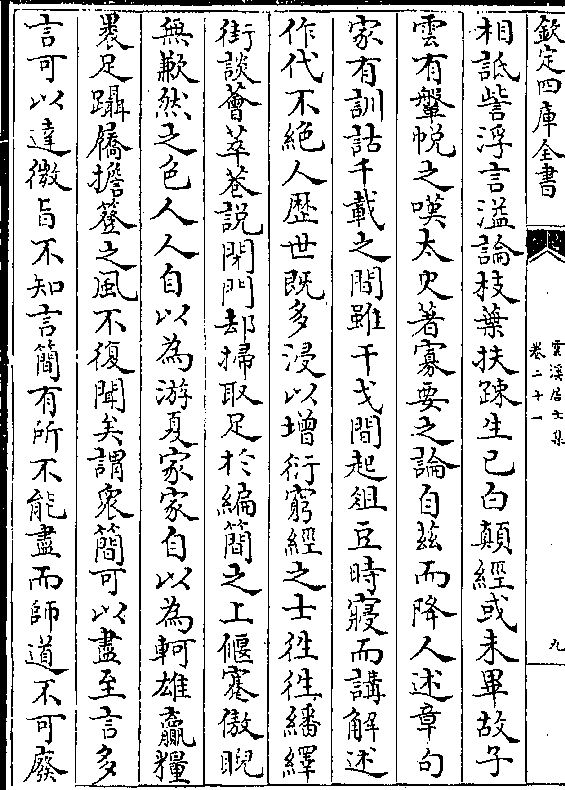 欽定四庫全書
雲溪居士集
卷二十一
九
相詆訾浮言溢論枝葉扶疎生已白顛經或未畢故子
雲有鞶帨之嘆太史著寡要之論自茲而降人述章句
家有訓詁千載之間雖干戈間起俎豆時寢而講解述
作代不絕人歷世既多浸以增衍窮經之士往往繙繹
街談薈萃巷說閉門却掃取足於編簡之上偃蹇傲睨
無歉然之色人人自以為游夏家家自以為軻雄贏糧
褁足躡屩擔簦之風不復聞矣謂衆簡可以盡至言多
言可以達微旨不知言簡有所不能盡而師道不可廢